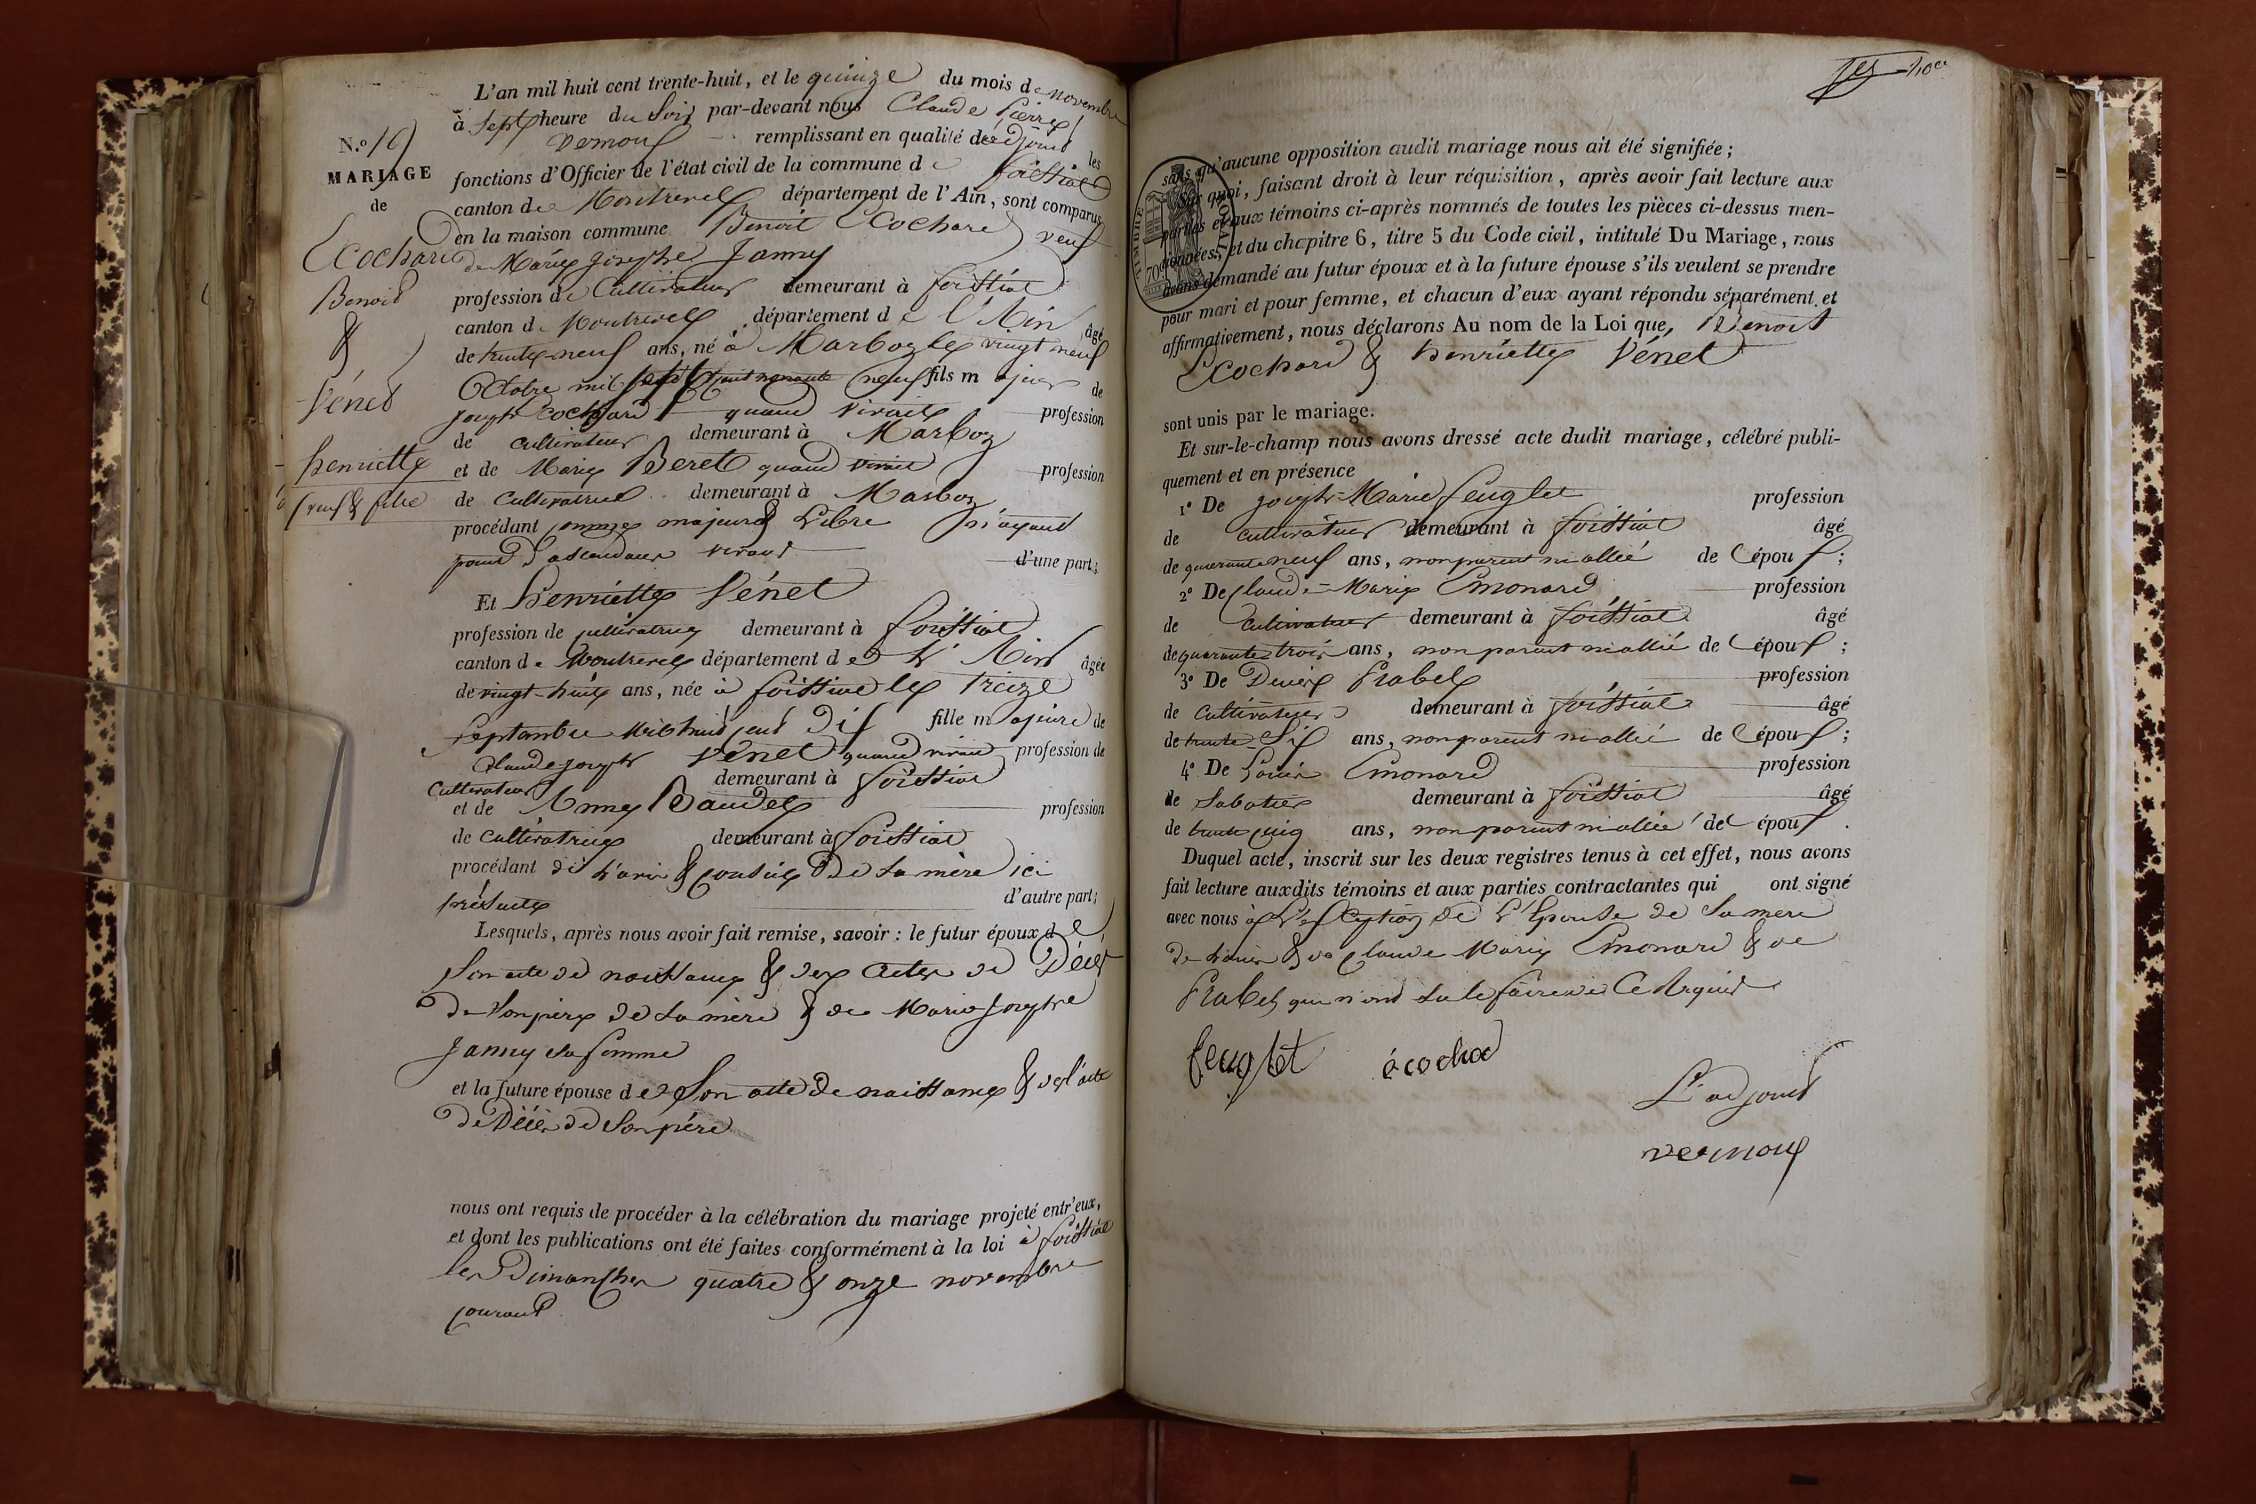 L'an mil huit cent trente-huit, et le quinze du mois de novembre
à sept heure du soir par-devant nous Claude Pierre
Vernoux remplissant en qualité d'adjoint les
N.o 10
MARIAGE
de
Ecochard
Benoit
&
Vénet
henriette
veuf & fille
fonctions d'Officier de l'état civil de la commune de foissiat
canton de Montrevel département de l'Ain, sont comparus
en la maison commune Benoit Ecochard veuf
de Marie Josephe Janny
profession de Cultivateur demeurant à foissiat
canton de Montrevel département de l'Ain âgé
de trente-neuf ans, né à Marboz le vingt neuf
Octobre mil sept cent nonante neuf fils majeur de
joseph Ecochard quand vivait profession
de cultivateur demeurant à Marboz
et de Marie Beret quand vivait profession
de Cultivatrice demeurant à Marboz
procédant comme majeur & libre n'ayant
point d'ascendans vivant d'une part;
Et henriette Vénet
profession de cultivatrice demeurant à foissiat
canton de Montrevel département de L'Ain âgée
de vingt-huit ans, née à foissiat le treize
septembre mil huit cent dix fille majeure de
Claude joseph Vénet quand vivait profession de
Cultivateur demeurant à foissiat
et de Anne Baudet profession
de Cultivatrice demeurant à foissiat
procédant de l'avis & consent de sa mère ici
présente d'autre part;
Lesquels, après nous avoir fait remise, savoir : le futur époux de
son acte de naissance & des actes de Décès
de son père de sa mère & de Marie Josephe
Janny sa femme
et la future épouse de son acte de naissance & de l'acte
de Décès de son père
nous ont requis de procéder à la célébration du mariage projeté entr'eux,
et dont les publications ont été faites conformément à la loi à foissiat
les Dimanches quatre & onze novembre
courant
sans qu'aucune opposition audit mariage nous ait été signifiée;
Sur quoi, faisant droit à leur réquisition, après avoir fait lecture aux
parties et aux témoins ci-après nommés de toutes les pièces ci-dessus men-
tionnées, et du chapitre 6, titre 5 du Code civil, intitulé Du Mariage, nous
avons demandé au futur époux et à la future épouse s'ils veulent se prendre
pour mari et pour femme, et chacun d'eux ayant répondu séparément et
affirmativement, nous déclarons Au nom de la Loi que, Benoit
Ecochard & henriette Vénet
TIMBRE ROYAL
70c
sont unis par le mariage.
Et sur-le-champ nous avons dressé acte dudit mariage, célébré publi-
quement et en présence
1° De joseph-Marie feuglet profession
de cultivateur demeurant à foissiat âgé
de quarante neuf ans, non parent ni allié de l'époux;
2° De Claude-Marie Emonard profession
de Cultivateur demeurant à foissiat âgé
de quarante trois ans, non parent ni allié de l'époux;
3° De Denis Frabet profession
de Cultivateur demeurant à foissiat âgé
de trente-six ans, non parent ni allié de l'époux;
4° De Louis Emonard profession
de Sabotier demeurant à foissiat âgé
de trente cinq ans, non parent ni allié de l'époux.
Duquel acte, inscrit sur les deux registres tenus à cet effet, nous avons
fait lecture auxdits témoins et aux parties contractantes qui ont signé
avec nous à L'exception de L'épouse de sa mère
de Louis & de Claude Marie Emonard & de
Frabet qui n'ont su le faire de Ce Requis
feuglet écochar
L'adjoint
vernoux